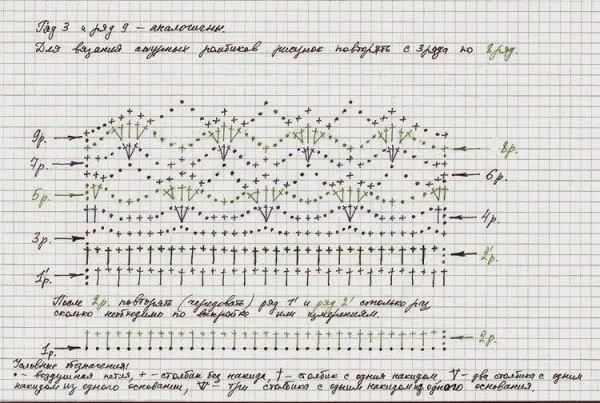 Ряд 3 и ряд 9 – аналогичны.
Для вязания ажурных ромбиков рисунок повторять с 3 ряда по 8 ряд.
9р.
8р.
7р.
6р.
5р.
4р.
3р.
2'р.
1'р.
После 2р. повторять (чередовать) ряд 1' и ряд 2' столько раз
сколько необходимо по выкройке или измерениям.
1р.
2р.
Условные обозначения:
• – воздушная петля, + – столбик без накида, † – столбик с одним накидом, – два столбика с одним
накидом из одного основания, – три столбика с одним накидом из одного основания.